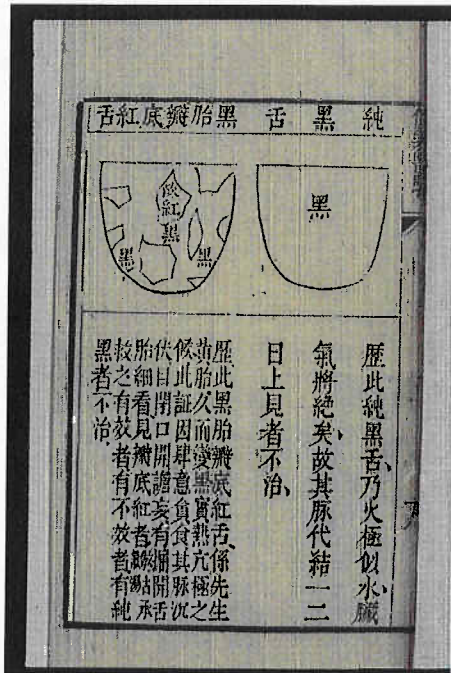 純黑舌
黑
歷此純黑舌、乃火極似水、臟
氣將絕矣、故其脉代結一二
日上見者不治、
黑胎瓣底紅舌
紅
黑
黑
黑
歷此黑胎瓣底紅舌、係先生
黃胎久而變黑實熱亢極之
候此証因肆意負食其脉沉
伏目閉口開譫妄有掰開舌
胎細看見瓣底紅者
救之有效者有不效者有純
黑者不治、